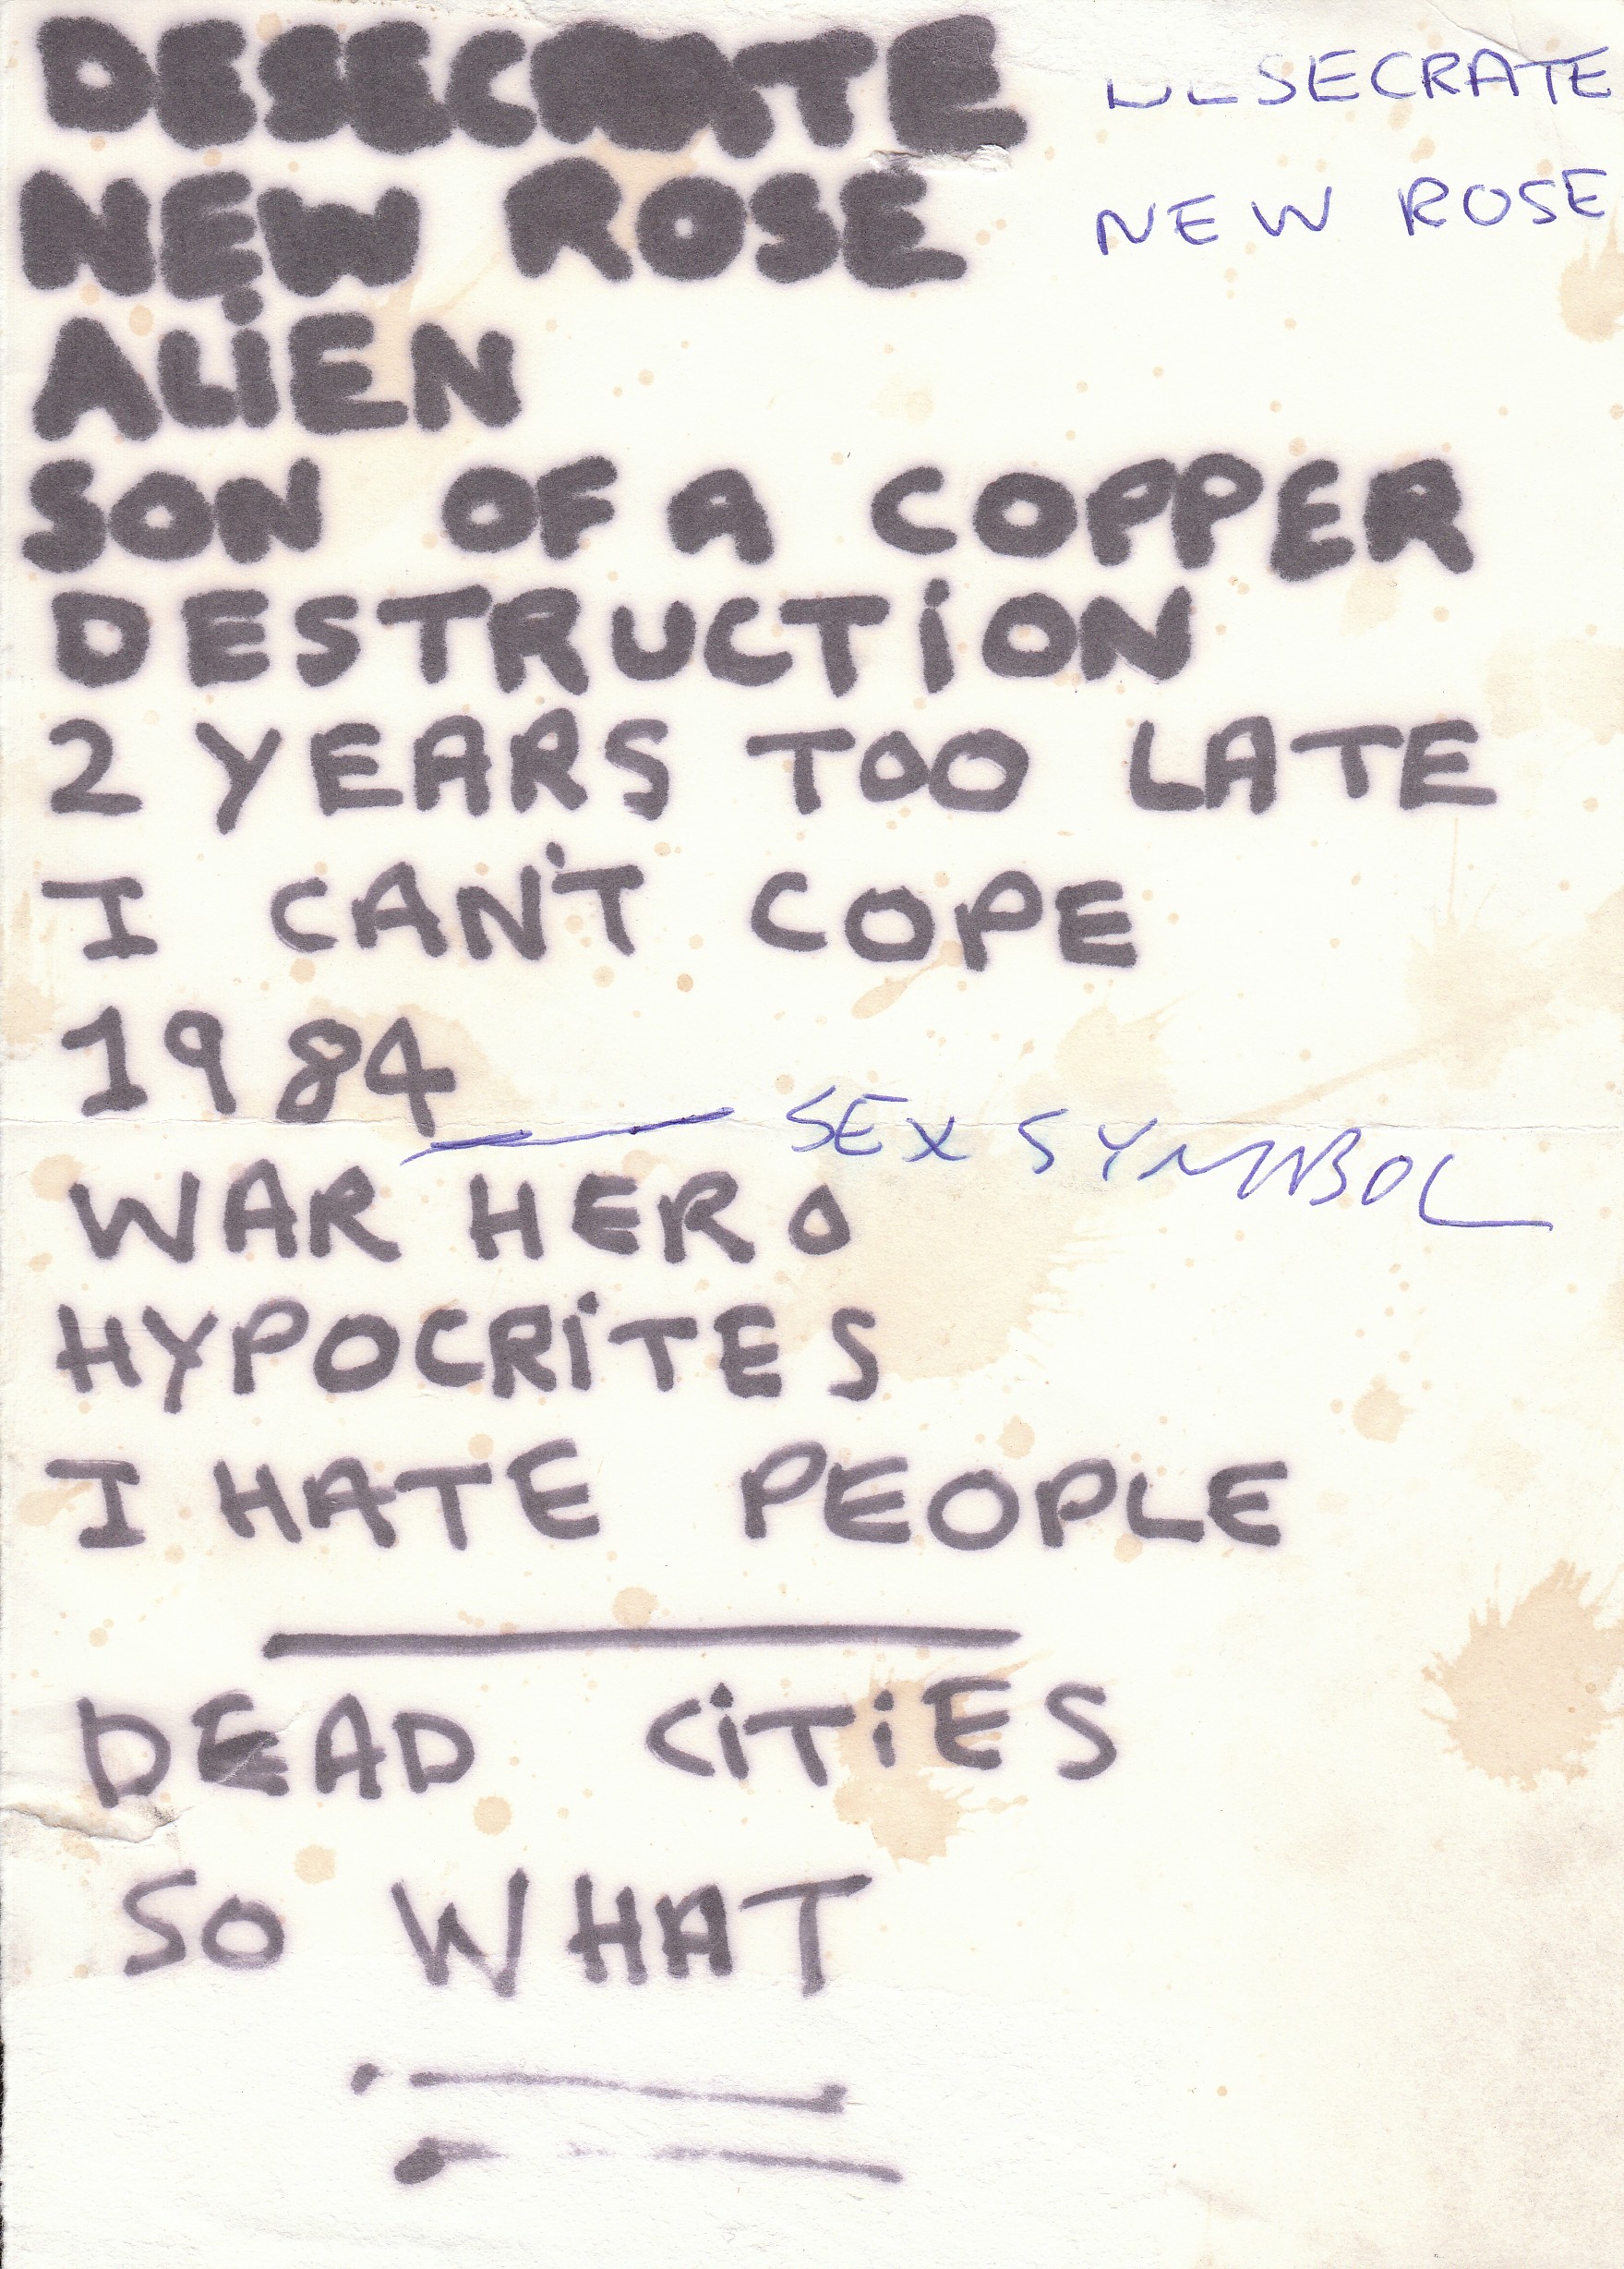 DESECRATE DESECRATE
NEW ROSE NEW ROSE
ALiEN
SON OF A COPPER
DESTRUCTiON
2 YEARS TOO LATE
I CAN'T COPE
1984
SEX SYMBOL
WAR HERO
HYPOCRiTES
I HATE PEOPLE
DEAD CiTiES
SO WHAT